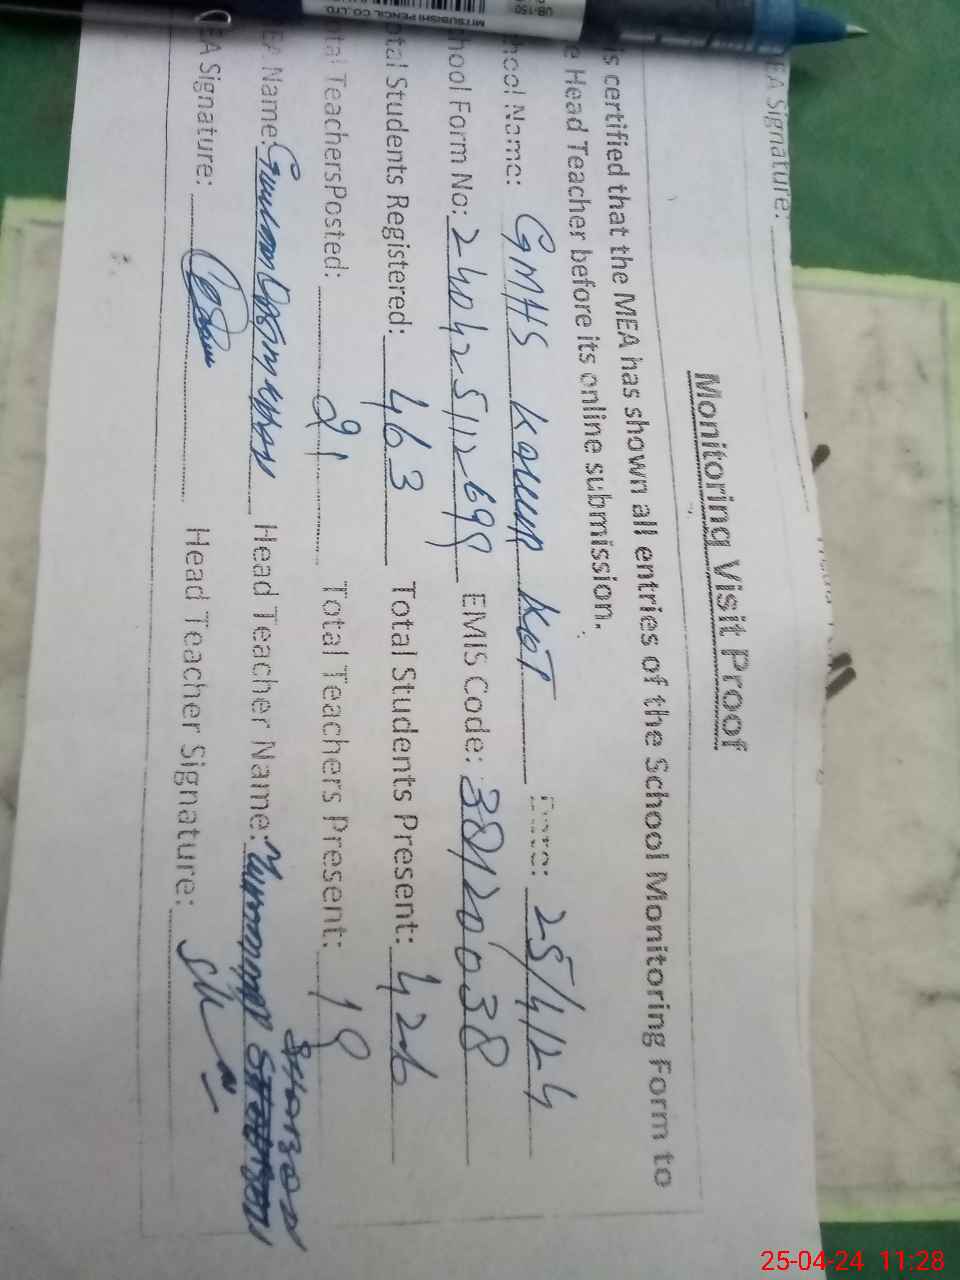 EA Signature:
Monitoring Visit Proof
is certified that the MEA has shown all entries of the School Monitoring Form to
e Head Teacher before its online submission.
hool Name: GMHS KALLUR KOT Date: 25/4/24
hool Form No: 240425112698 EMIS Code: 38120038
otal Students Registered: 463 Total Students Present: 426
tal TeachersPosted: 21 Total Teachers Present: 19
EA Name: Head Teacher Name: Muhammad
EA Signature: Head Teacher Signature:
MITSUBISHI PENCIL CO.,LTD.
UB-150
25-04-24 11:28